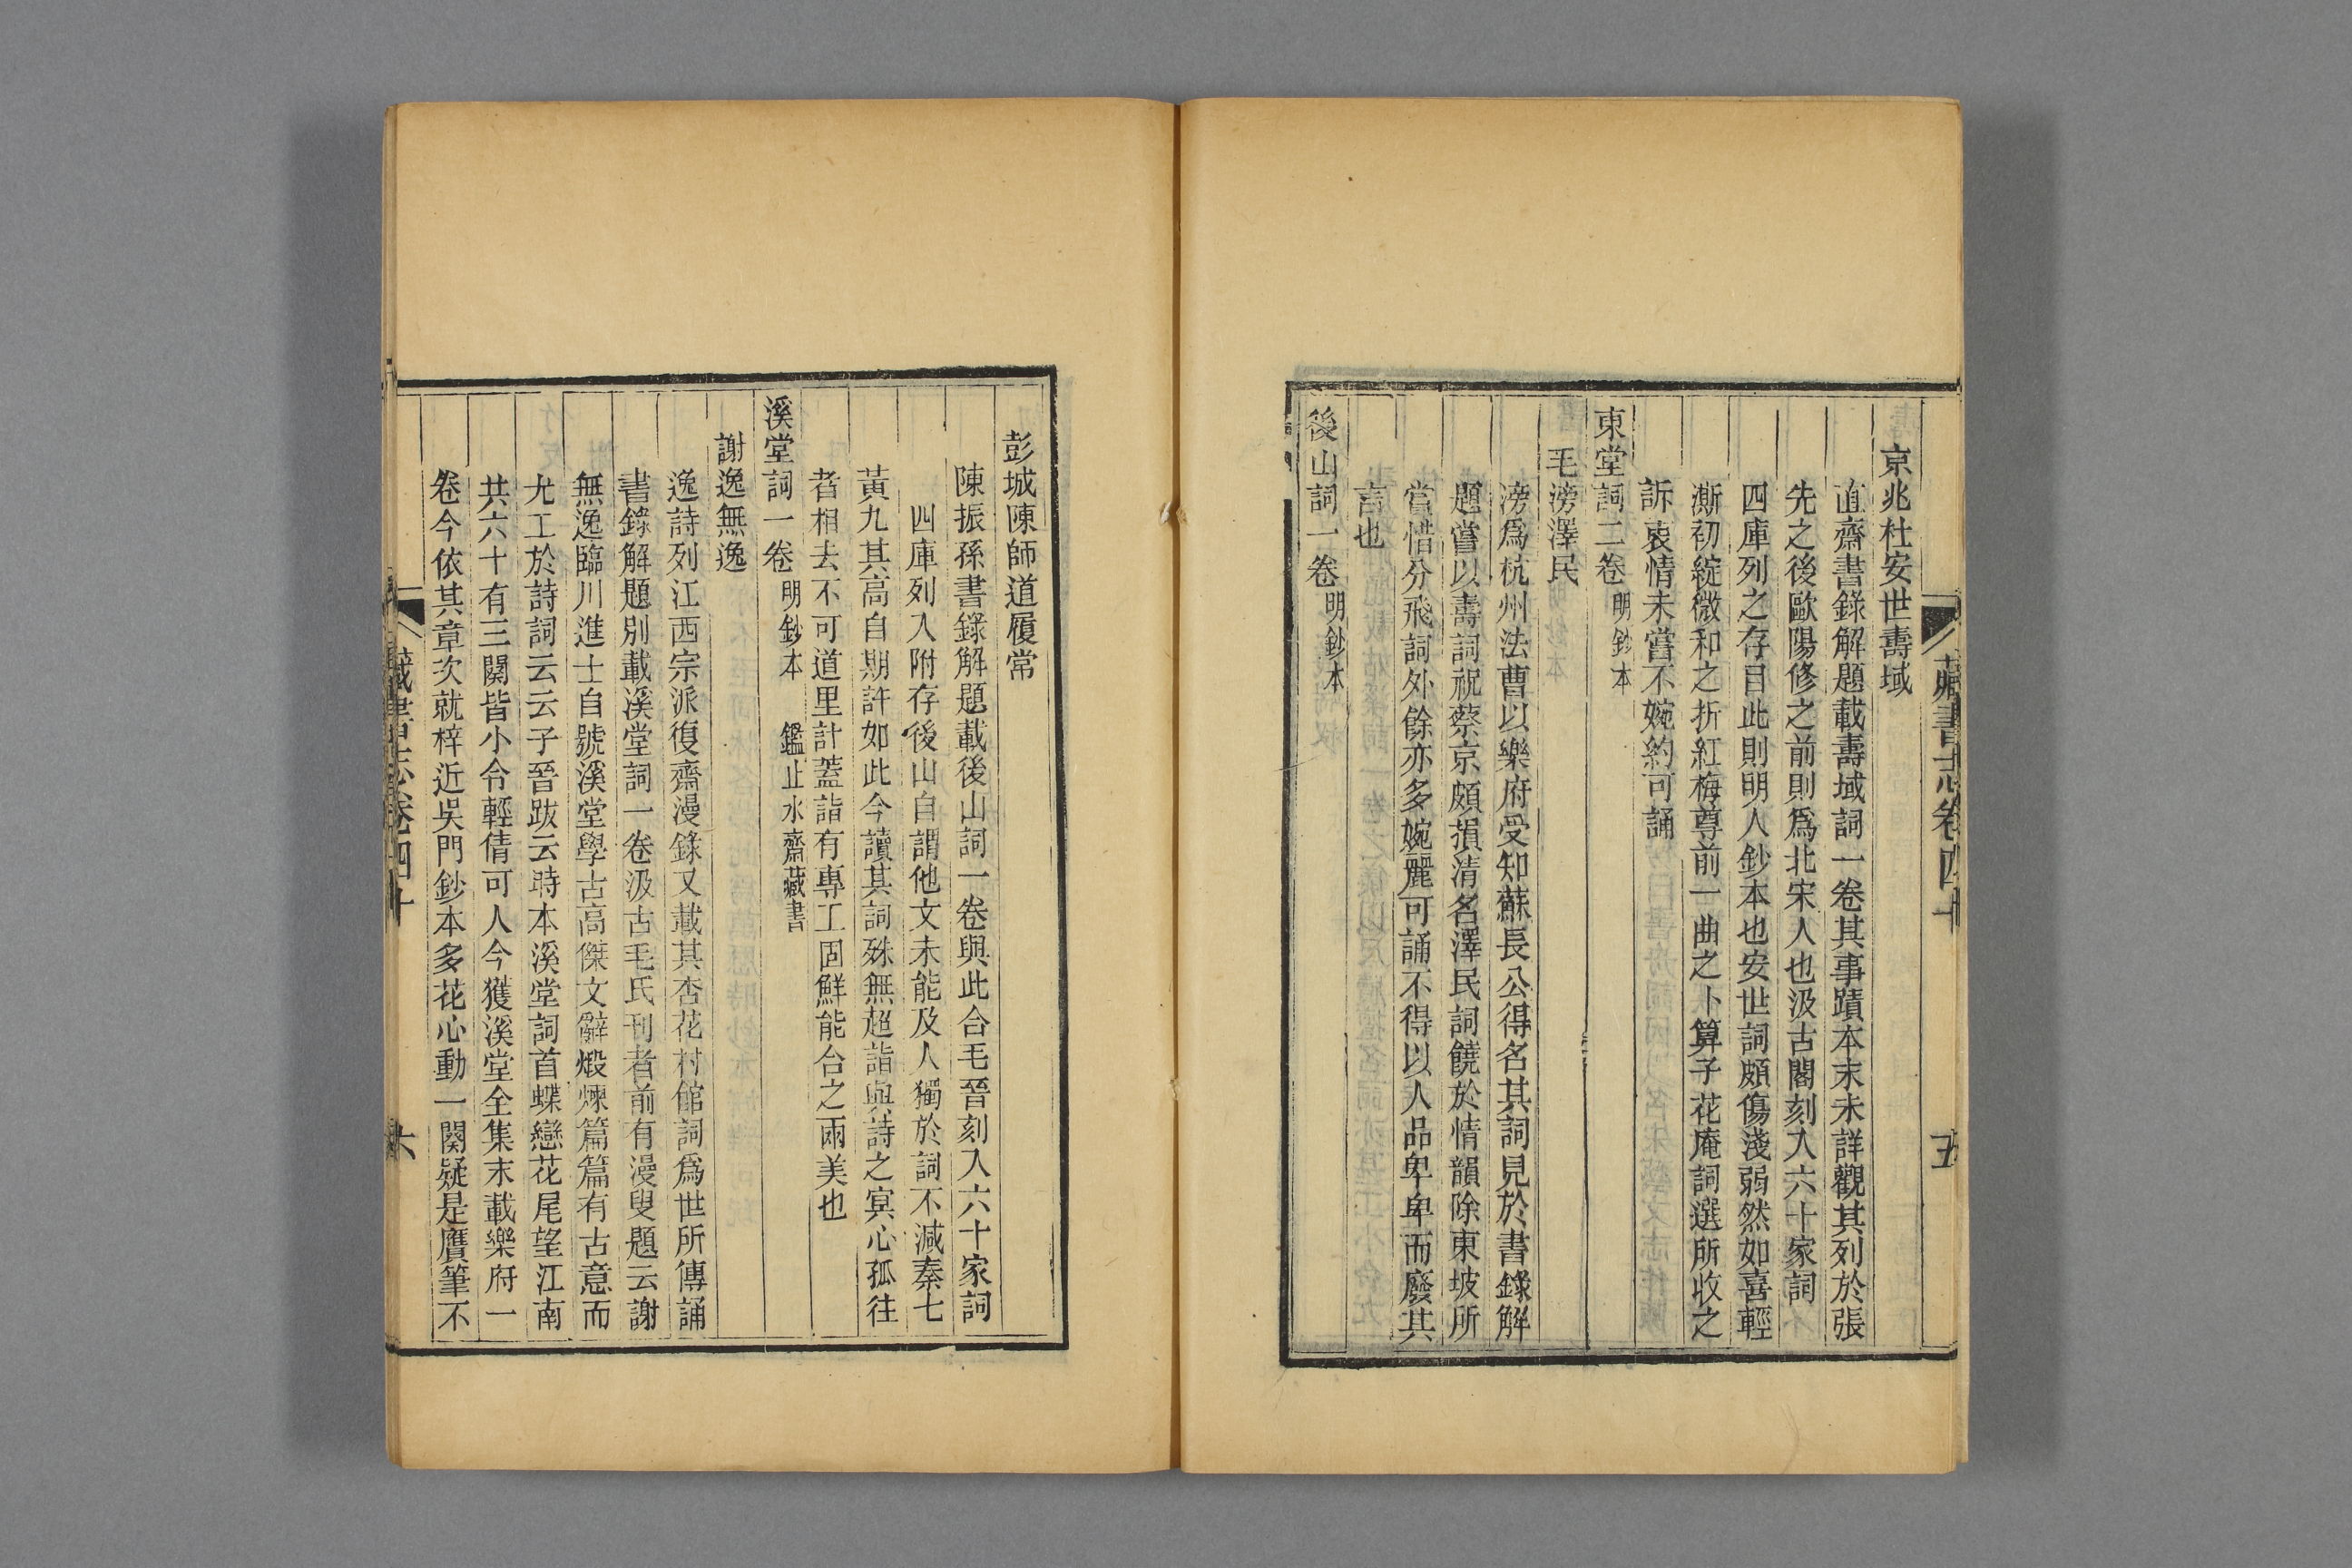 京兆杜安世壽域
直齋書錄解題載壽域詞一卷其事蹟本末未詳觀其列於張
先之後歐陽修之前則爲北宋人也汲古閣刻入六十家詞
四庫列之存目此則明人鈔本也安世詞頗傷淺弱然如喜輕
澌初綻微和之折紅梅尊前一曲之卜算子花庵詞選所收之
訴衷情未嘗不婉約可誦
東堂詞二卷 明鈔本
毛滂澤民
滂爲杭州法曹以樂府受知蘇長公得名其詞見於書錄解
題嘗以壽詞祝蔡京頗損清名澤民詞饒於情韻除東坡所
當惜分飛詞外餘亦多婉麗可誦不得以人品卑卑而廢其
言也
後山詞一卷 明鈔本
藏書志卷四十
五
彭城陳師道履常
陳振孫書錄解題載後山詞一卷與此合毛晉刻入六十家詞
四庫列入附存後山自謂他文未能及人獨於詞不減秦七
黃九其高自期許如此今讀其詞殊無超詣與詩之冥心孤往
者相去不可道里計蓋詣有專工固鮮能合之兩美也
溪堂詞一卷 明鈔本 鑑止水齋藏書
謝逸無逸
逸詩列江西宗派復齋漫錄又載其杏花村館詞爲世所傳誦
書錄解題別載溪堂詞一卷汲古毛氏刊者前有漫叟題云謝
無逸臨川進士自號溪堂學古高傑文辭煅煉篇篇有古意而
尤工於詩詞云云子晉跋云時本溪堂詞首蝶戀花尾望江南
共六十有三闋皆小令輕倩可人今獲溪堂全集末載樂府一
卷今依其章次就梓近吳門鈔本多花心動一闋疑是贋筆不
藏書志卷四十
六